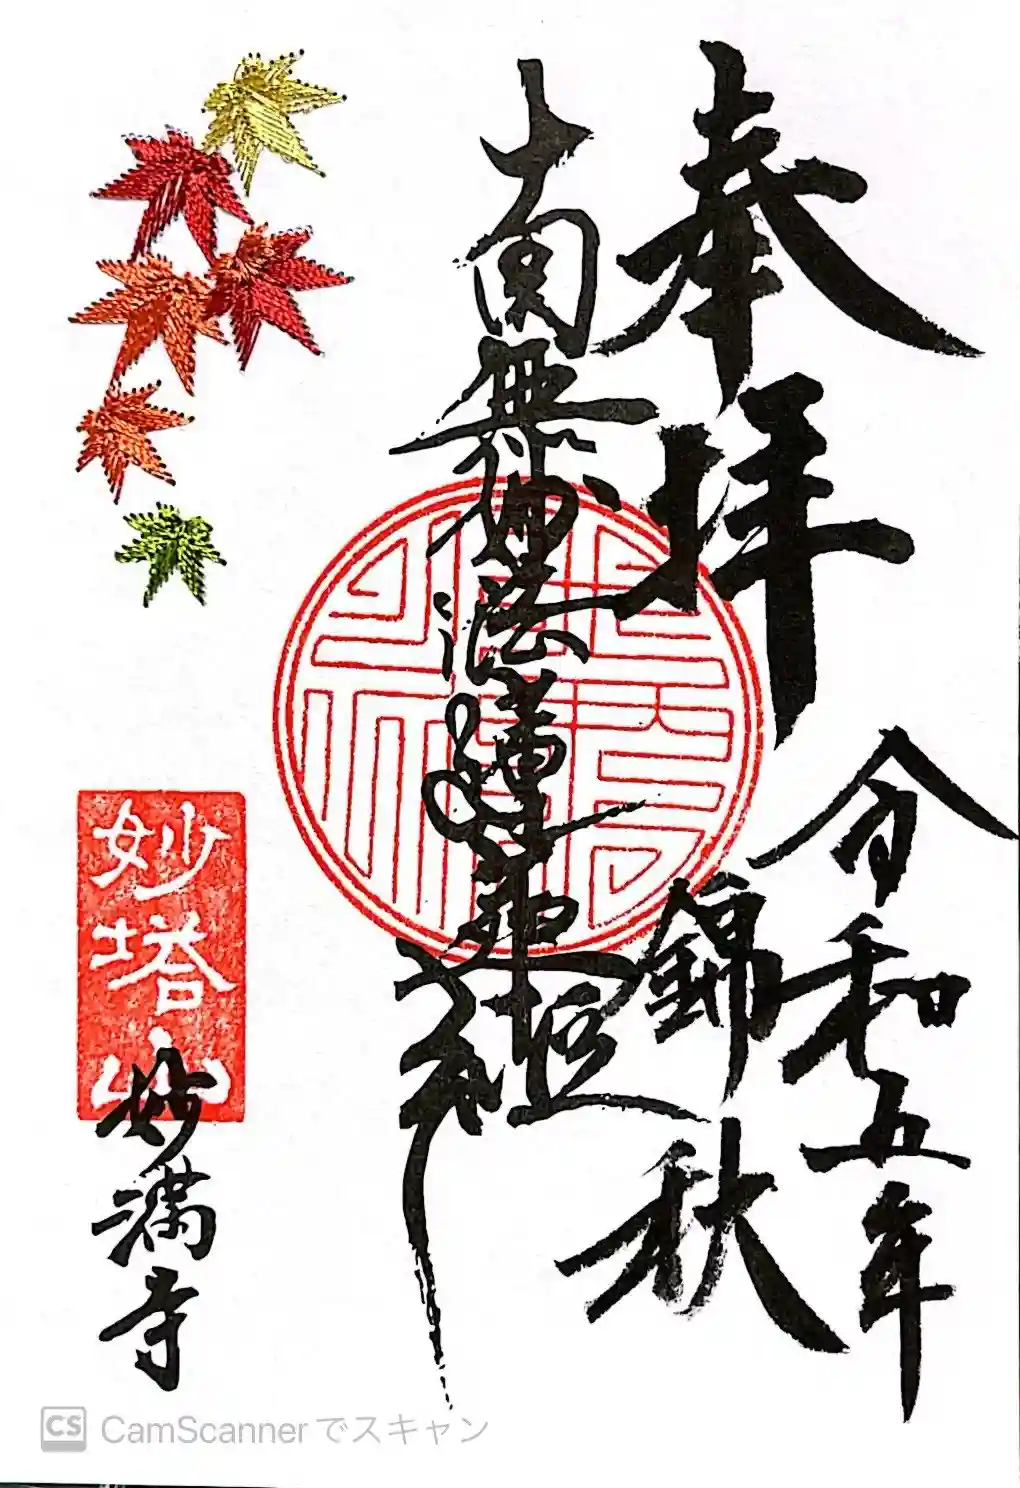 奉拝
令和五年
錦秋
南無妙法蓮華経
妙塔山
妙満寺
CS CamScannerでスキャン